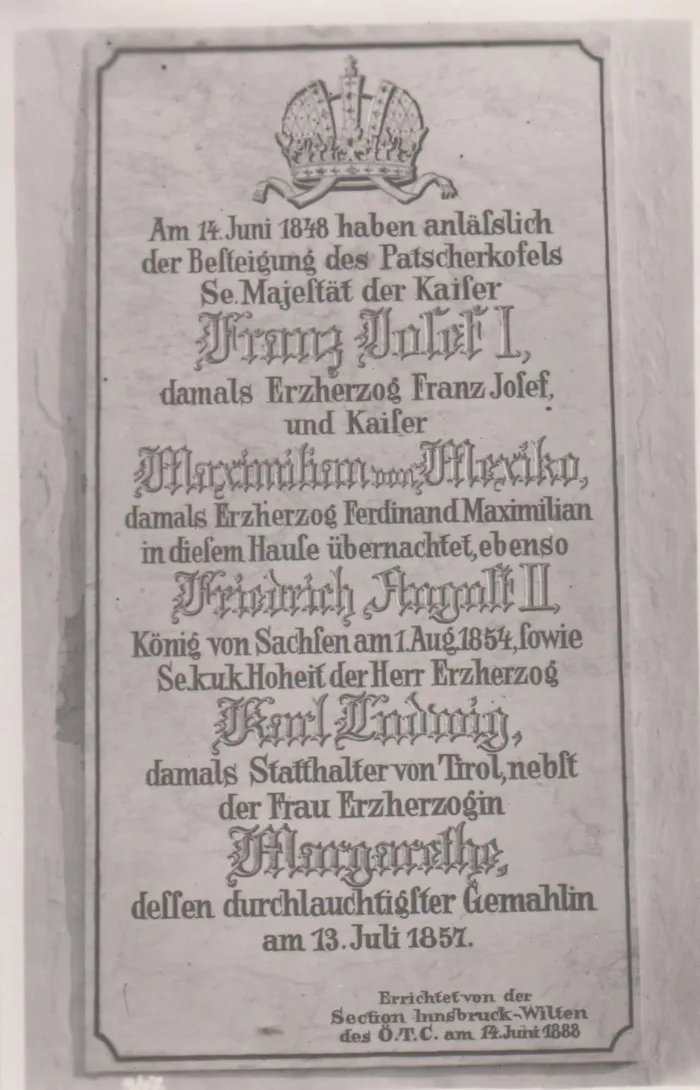 Am 14. Juni 1848 haben anläſslich
der Beſteigung des Patscherkofels
Se. Majeſtät der Kaiſer
Franz Joſef I.,
damals Erzherzog Franz Joſef,
und Kaiſer
Maximilian von Mexiko,
damals Erzherzog Ferdinand Maximilian
in dieſem Hauſe übernachtet, ebenso
Friedrich Auguſt II.,
König von Sachſen am 1. Aug. 1854, ſowie
Se. k. u. k. Hoheit der Herr Erzherzog
Karl Ludwig,
damals Statthalter von Tirol, nebſt
der Frau Erzherzogin
Margarethe,
deſſen durchlauchtigſter Gemahlin
am 13. Juli 1857.
Errichtet von der
Section Innsbruck-Wilten
des Ö.T.C. am 14. Juni 1888